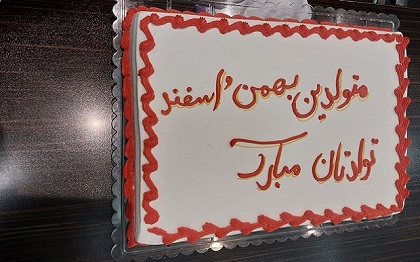 متولدین بهمن و اسفند
تولدتان مبارک